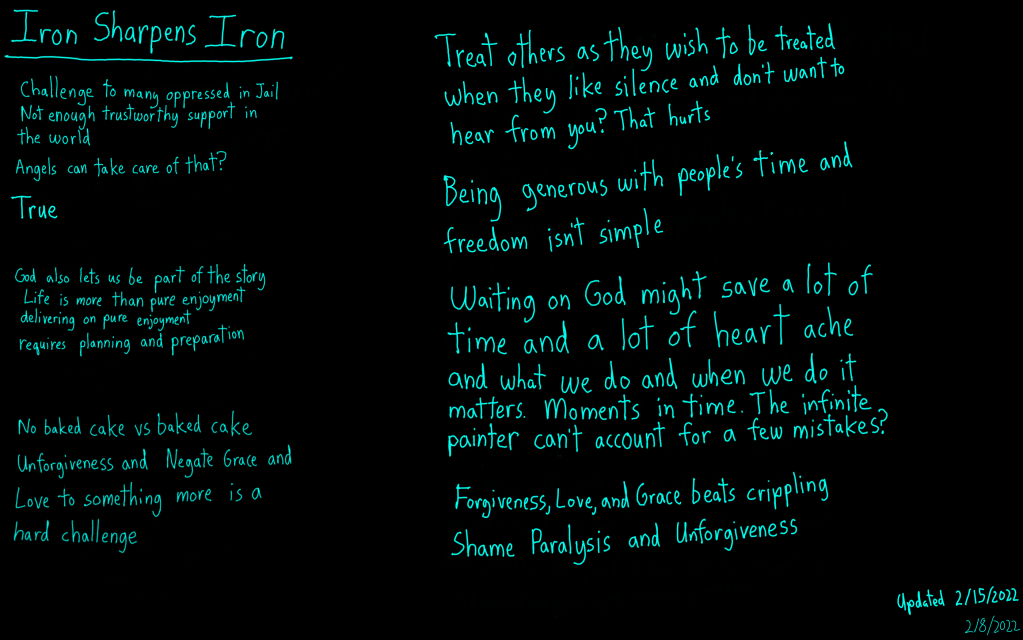 Iron Sharpens Iron
Challenge to many oppressed in Jail
Not enough trustworthy support in
the world
Angels can take care of that?
True
God also lets us be part of the story
Life is more than pure enjoyment
delivering on pure enjoyment
requires planning and preparation
No baked cake vs baked cake
Unforgiveness and Negate Grace and
Love to something more is a
hard challenge
Treat others as they wish to be treated
when they like silence and don't want to
hear from you? That hurts
Being generous with people's time and
freedom isn't simple
Waiting on God might save a lot of
time and a lot of heart ache
and what we do and when we do it
matters. Moments in time. The infinite
painter can't account for a few mistakes?
Forgiveness, Love, and Grace beats crippling
Shame Paralysis and Unforgiveness
Updated 2/15/2022
2/8/2022